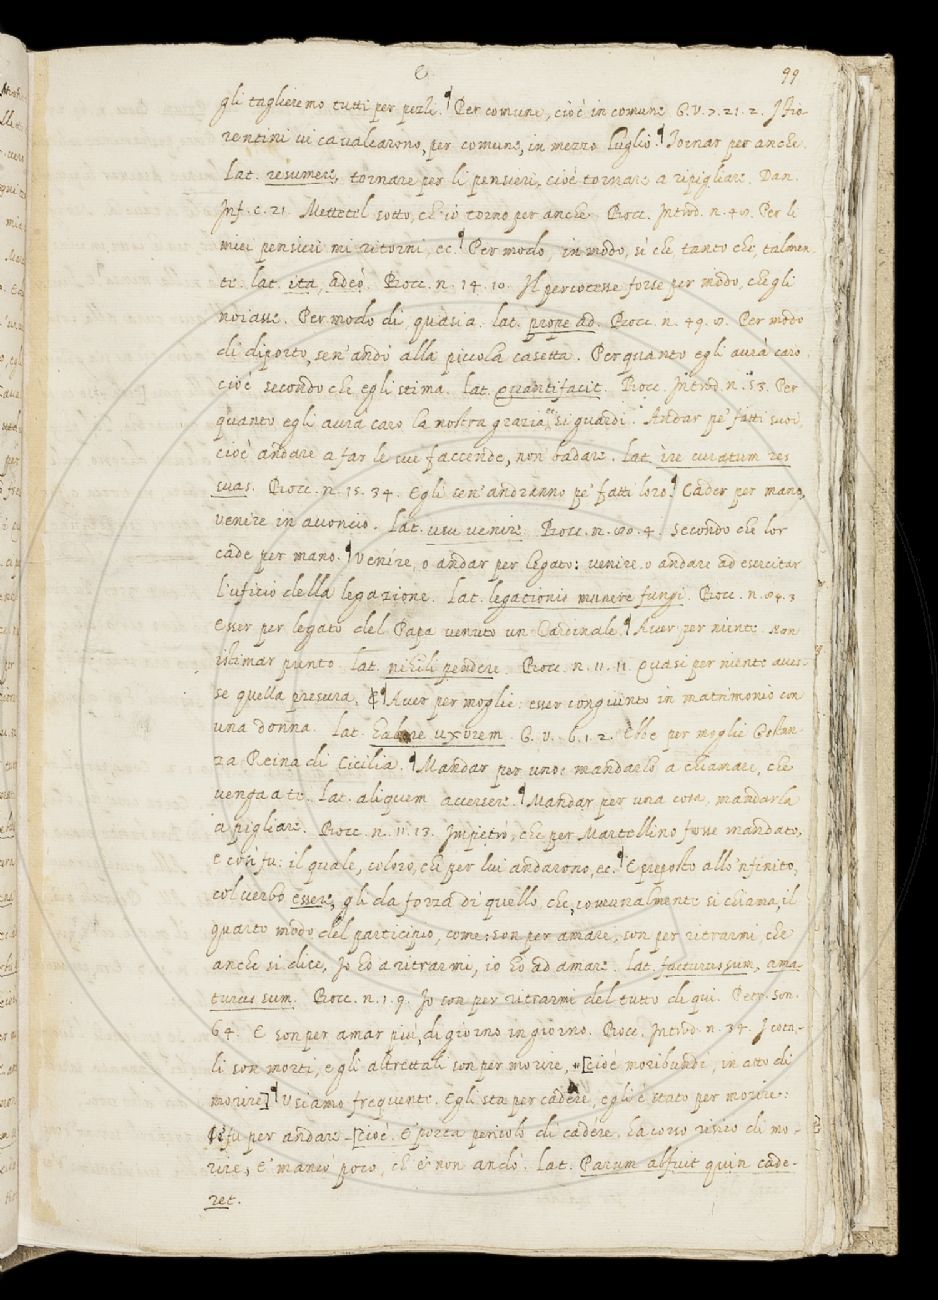 C
99
gli taglieremo tutti per pezli. ¶ Per comune, cioè in comune G.V. 7. 21. 2. I Fio-
rentini vi cavalcarono, per comune, in mezzo Luglio. ¶ Tornar per anche.
Lat. resumere, tornare per li pensieri, cioè tornare a ripigliare. Dan.
Inf. c. 21. Mettetel sotto, ch'io torno per anche. Bocc. Introd. n. 49. Per li
miei pensieri mi ritorni, ec. ¶ Per modo, in modo, sì che, tanto che, talmen-
te. lat. ita, adeò. Bocc. n. 14. 10. Il percotesse forse per modo, che gli
noiasse. Per modo di, quasi a. lat. prope ad. Bocc. n. 49. 9. Per modo
di diporto, sen' andò alla piccola casetta. Per quanto egli avrà caro
cioè secondo che egli stima. lat. quanti facit. Bocc. Introd. n. 53. Per
quanto egli avrà caro la nostra grazia, si guardi. Andar pe' fatti suoi,
cioè andare a far le sue faccende, non badare. lat. ire curatum res
suas. Bocc. n. 15. 34. Egli sen' andranno pe' fatti loro. ¶ Cader per mano,
venire in acconcio. Lat. usu venire. Bocc. n. 90. 4. Secondo che lor
cade per mano. ¶ Venire, o andar per legato: venire o andare ad esercitar
l'uficio della legazione. Lat. legationis munere fungi. Bocc. n. 84. 3
Esser per legato del Papa venuto un Cardinale. ¶ Aver per niente. Non
istimar punto. lat. nihili pendere. Bocc. n. 11. 11. Quasi per niente aves-
se quella presura. ¶ Aver per moglie: esser congiunto in matrimonio con
una donna. Lat. habere uxorem. G.V. 6. 1. 2. Ebbe per moglie Gostan-
za Reina di Cicilia. ¶ Mandar per uno: mandarlo a chiamare, che
venga a te. lat. aliquem accersere. ¶ Mandar per una cosa, mandarla
a pigliare. Bocc. n. 11. 13. Impetrò, che per Martellino fosse mandato,
e così fu: il quale, coloro, che per lui andarono, ec. ¶ E preposto allo 'nfinito,
col verbo essere, gli da forza di quello, che, comunalmente si chiama, il
quarto modo del participio, come: son per amare, son per ritrarmi, che
anche si dice, Io ho a ritrarmi, io ho ad amare. Lat. facturus sum, ama-
turus sum. Bocc. n. 1. 9. Io son per ritrarmi del tutto di qui. Petr. Son.
64. E son per amar più, di giorno in giorno. Bocc. Introd. n. 34. I cota-
li son morti, e gli altrettali son per morire, [cioè moribundi, in atto di
morire] ¶ Usiamo frequente. Egli sta per cadere, egli è stato per morire:
fu per andare [cioè. E' porta pericolo di cadere. ha corso risico di mo-
rire, e' mancò poco, ch' e' non andò. Lat. Parum abfuit quin cade-
ret.